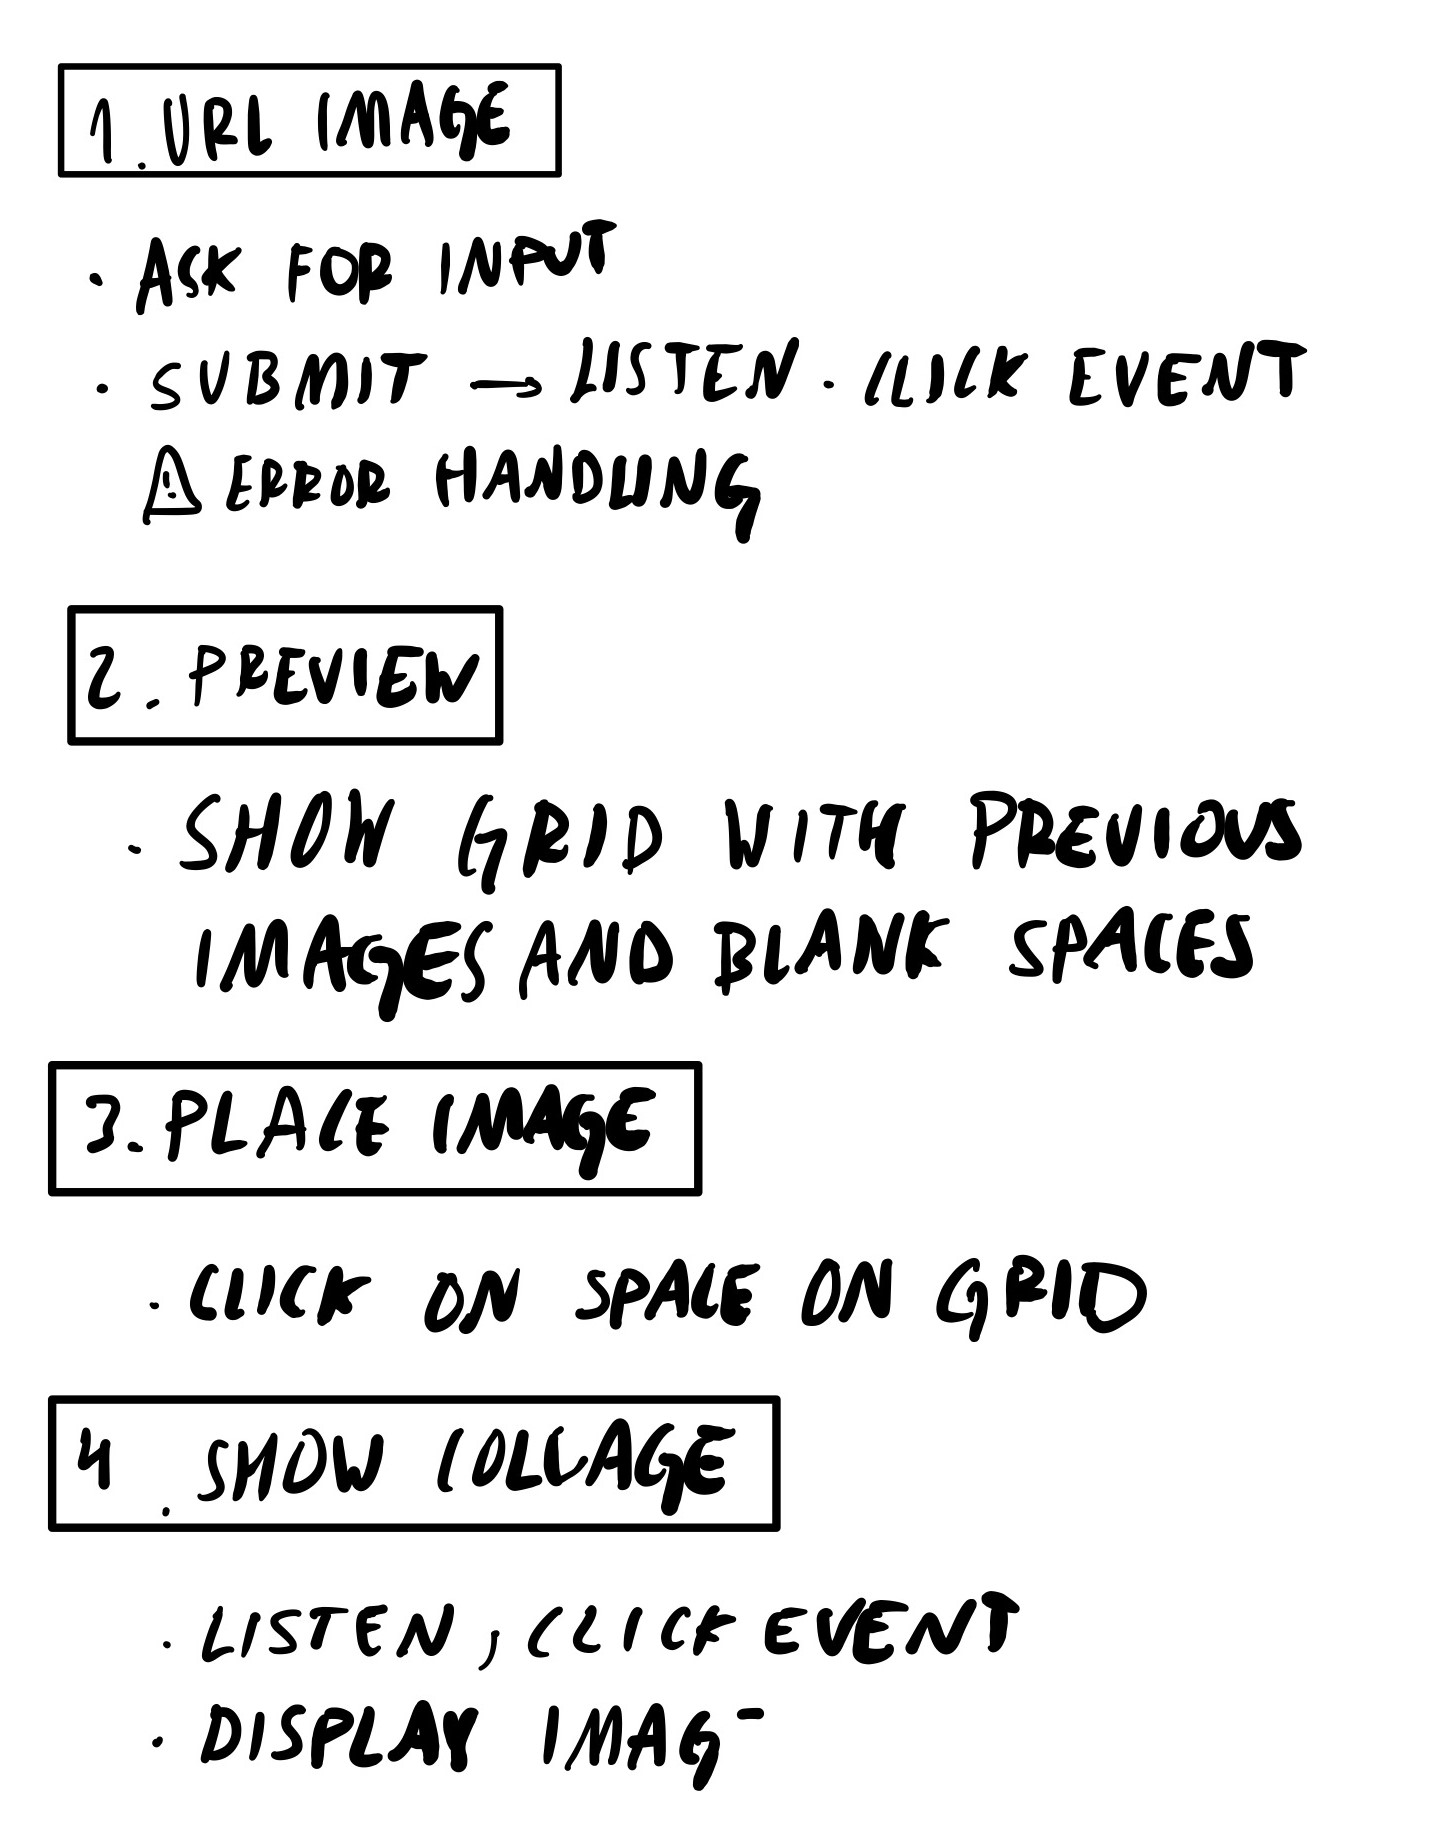 1. URL IMAGE
· ASK FOR INPUT
· SUBMIT → LISTEN · CLICK EVENT
⚠ ERROR HANDLING
2. PREVIEW
· SHOW GRID WITH PREVIOUS
IMAGES AND BLANK SPACES
3. PLACE IMAGE
· CLICK ON SPACE ON GRID
4. SHOW COLLAGE
· LISTEN, CLICK EVENT
· DISPLAY IMAG-